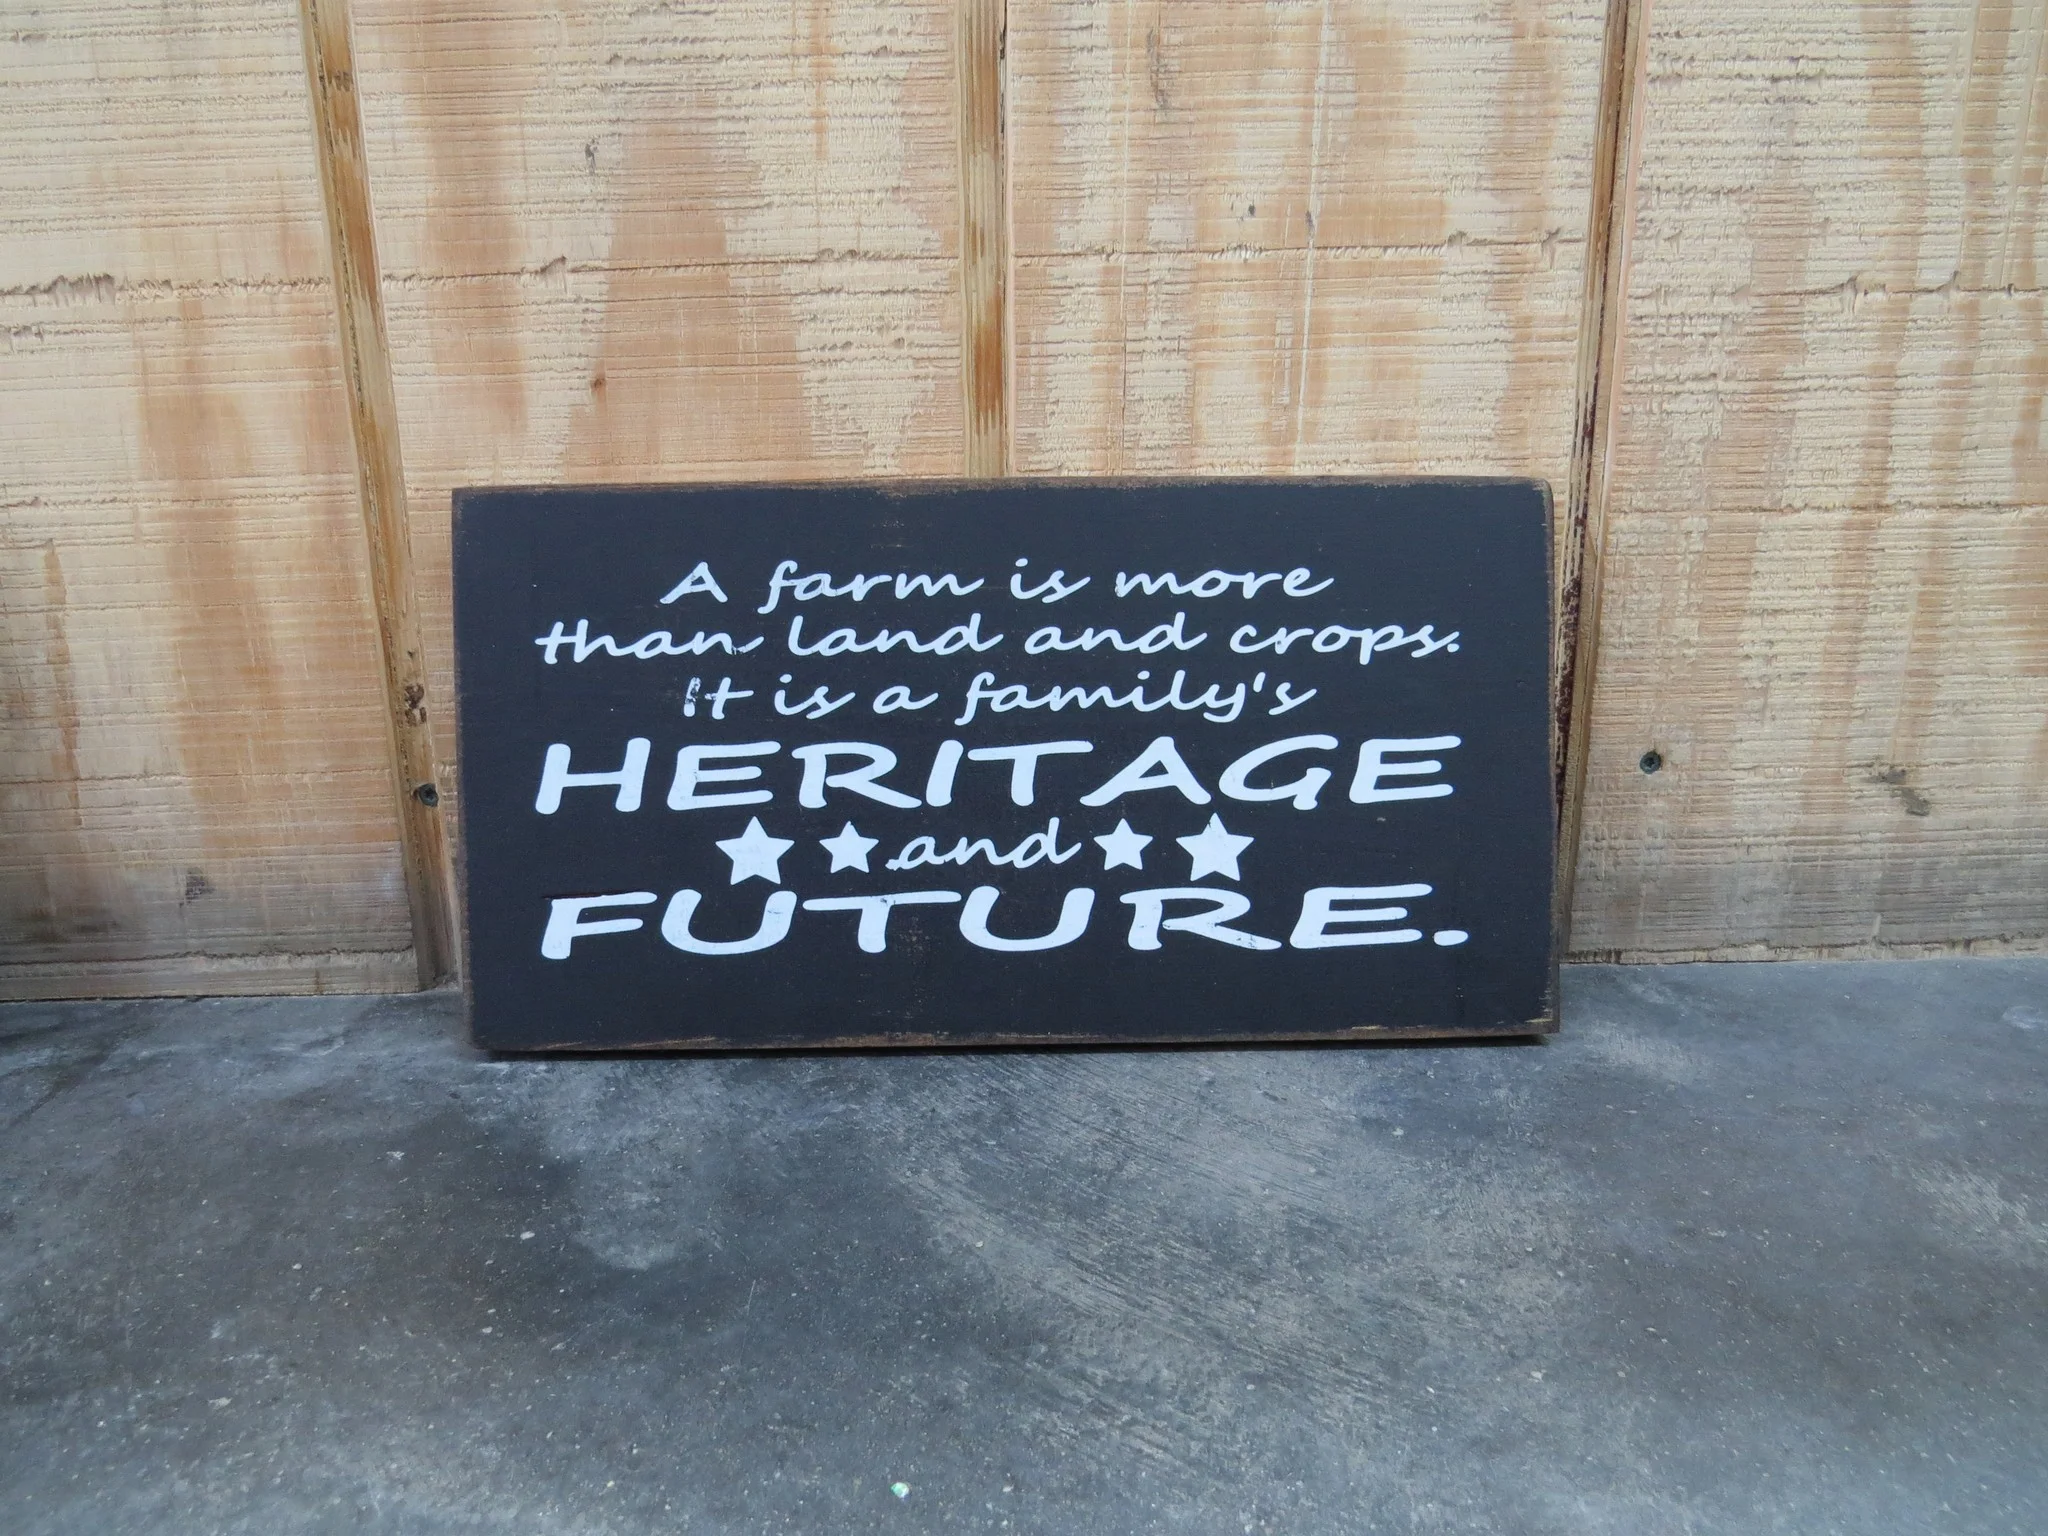 A farm is more
than land and crops.
It is a family's
HERITAGE
and
FUTURE.